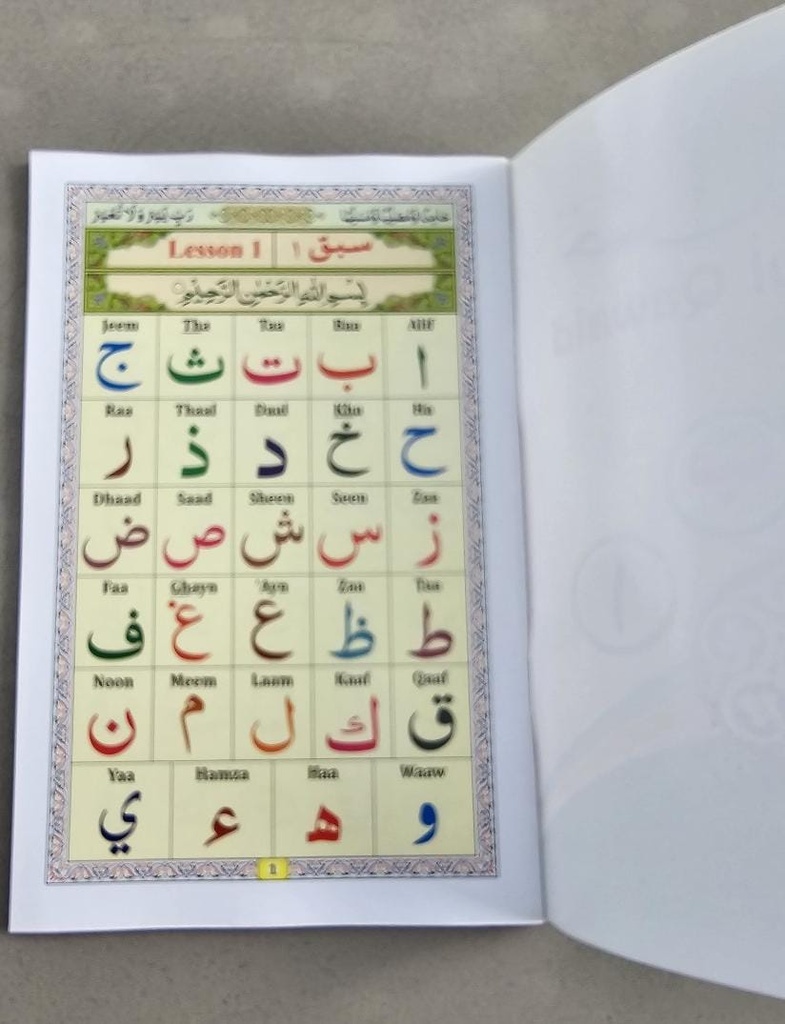 حَامِدًا وَّمُصَلِّيًا وَّمُسَلِّمًا رَبِّ يَسِّرْ وَلَا تُعَسِّرْ
Lesson 1 سبق ۱
بِسْمِ اللهِ الرَّحْمٰنِ الرَّحِيْمِ
Jeem Tha Taa Baa Alif
ا ب ت ث ج
Raa Thaal Daal Kha Ha
ح خ د ذ ر
Dhaad Saad Sheen Seen Zaa
ز س ش ص ض
Faa Ghayn 'Ayn Zaa Taa
ط ظ ع غ ف
Noon Meem Laam Kaaf Qaaf
ق ك ل م ن
Yaa Hamza Haa Waaw
و ه ء ي
1